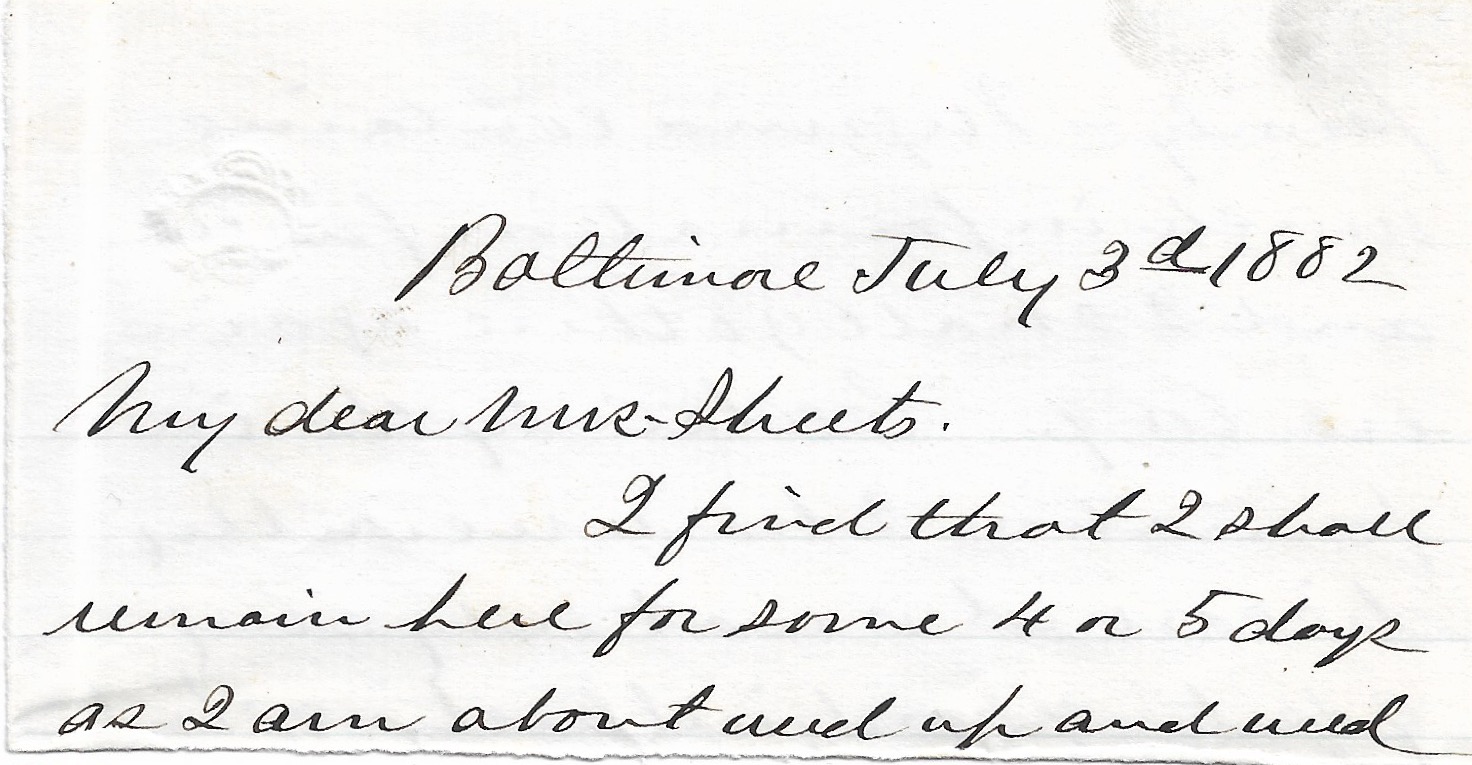 Baltimore July 3d 1882
My dear Mrs. Sheets.
I find that I shall
remain here for some 4 or 5 days
as I am about used up and need